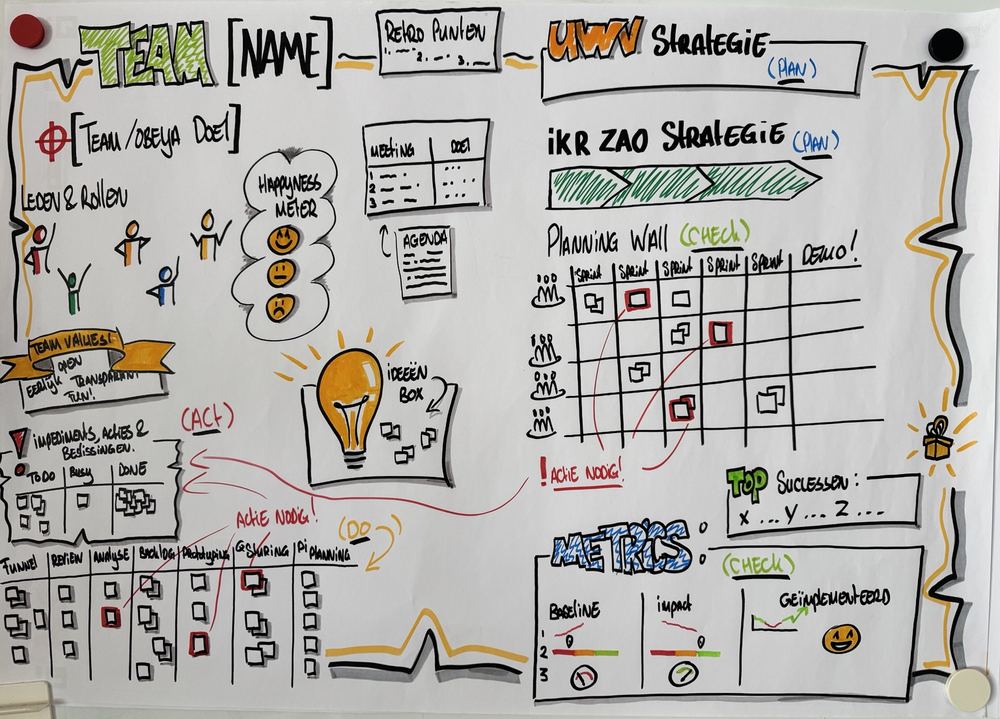 TEAM [NAME]
RETRO PUNTEN
1. 2. ... 3. ...
[TEAM/OBEYA DOEL]
LEDEN & ROLLEN
HAPPYNESS
METER
MEETING DOEL
1
2
3
AGENDA
TEAM VALUES!
OPEN
EERLIJK TRANSPARANT
FUN!
IDEEËN
BOX
! IMPEDIMENTS, ACTIES &
BESLISSINGEN.
(ACT)
TO DO BUSY DONE
ACTIE NODIG!
(DO)
FUNNEL REVIEW ANALYSE BACKLOG PROTOTYPING PI PLANNING
UWV STRATEGIE
(PLAN)
iKR ZAO STRATEGIE (PLAN)
PLANNING WALL (CHECK)
SPRINT SPRINT SPRINT SPRINT SPRINT DEMO!
! ACTIE NODIG!
TOP SUCCESSEN:
X ... Y ... Z ...
METRICS:
(CHECK)
BASELINE IMPACT GEÏMPLEMENTEERD
1
2
3